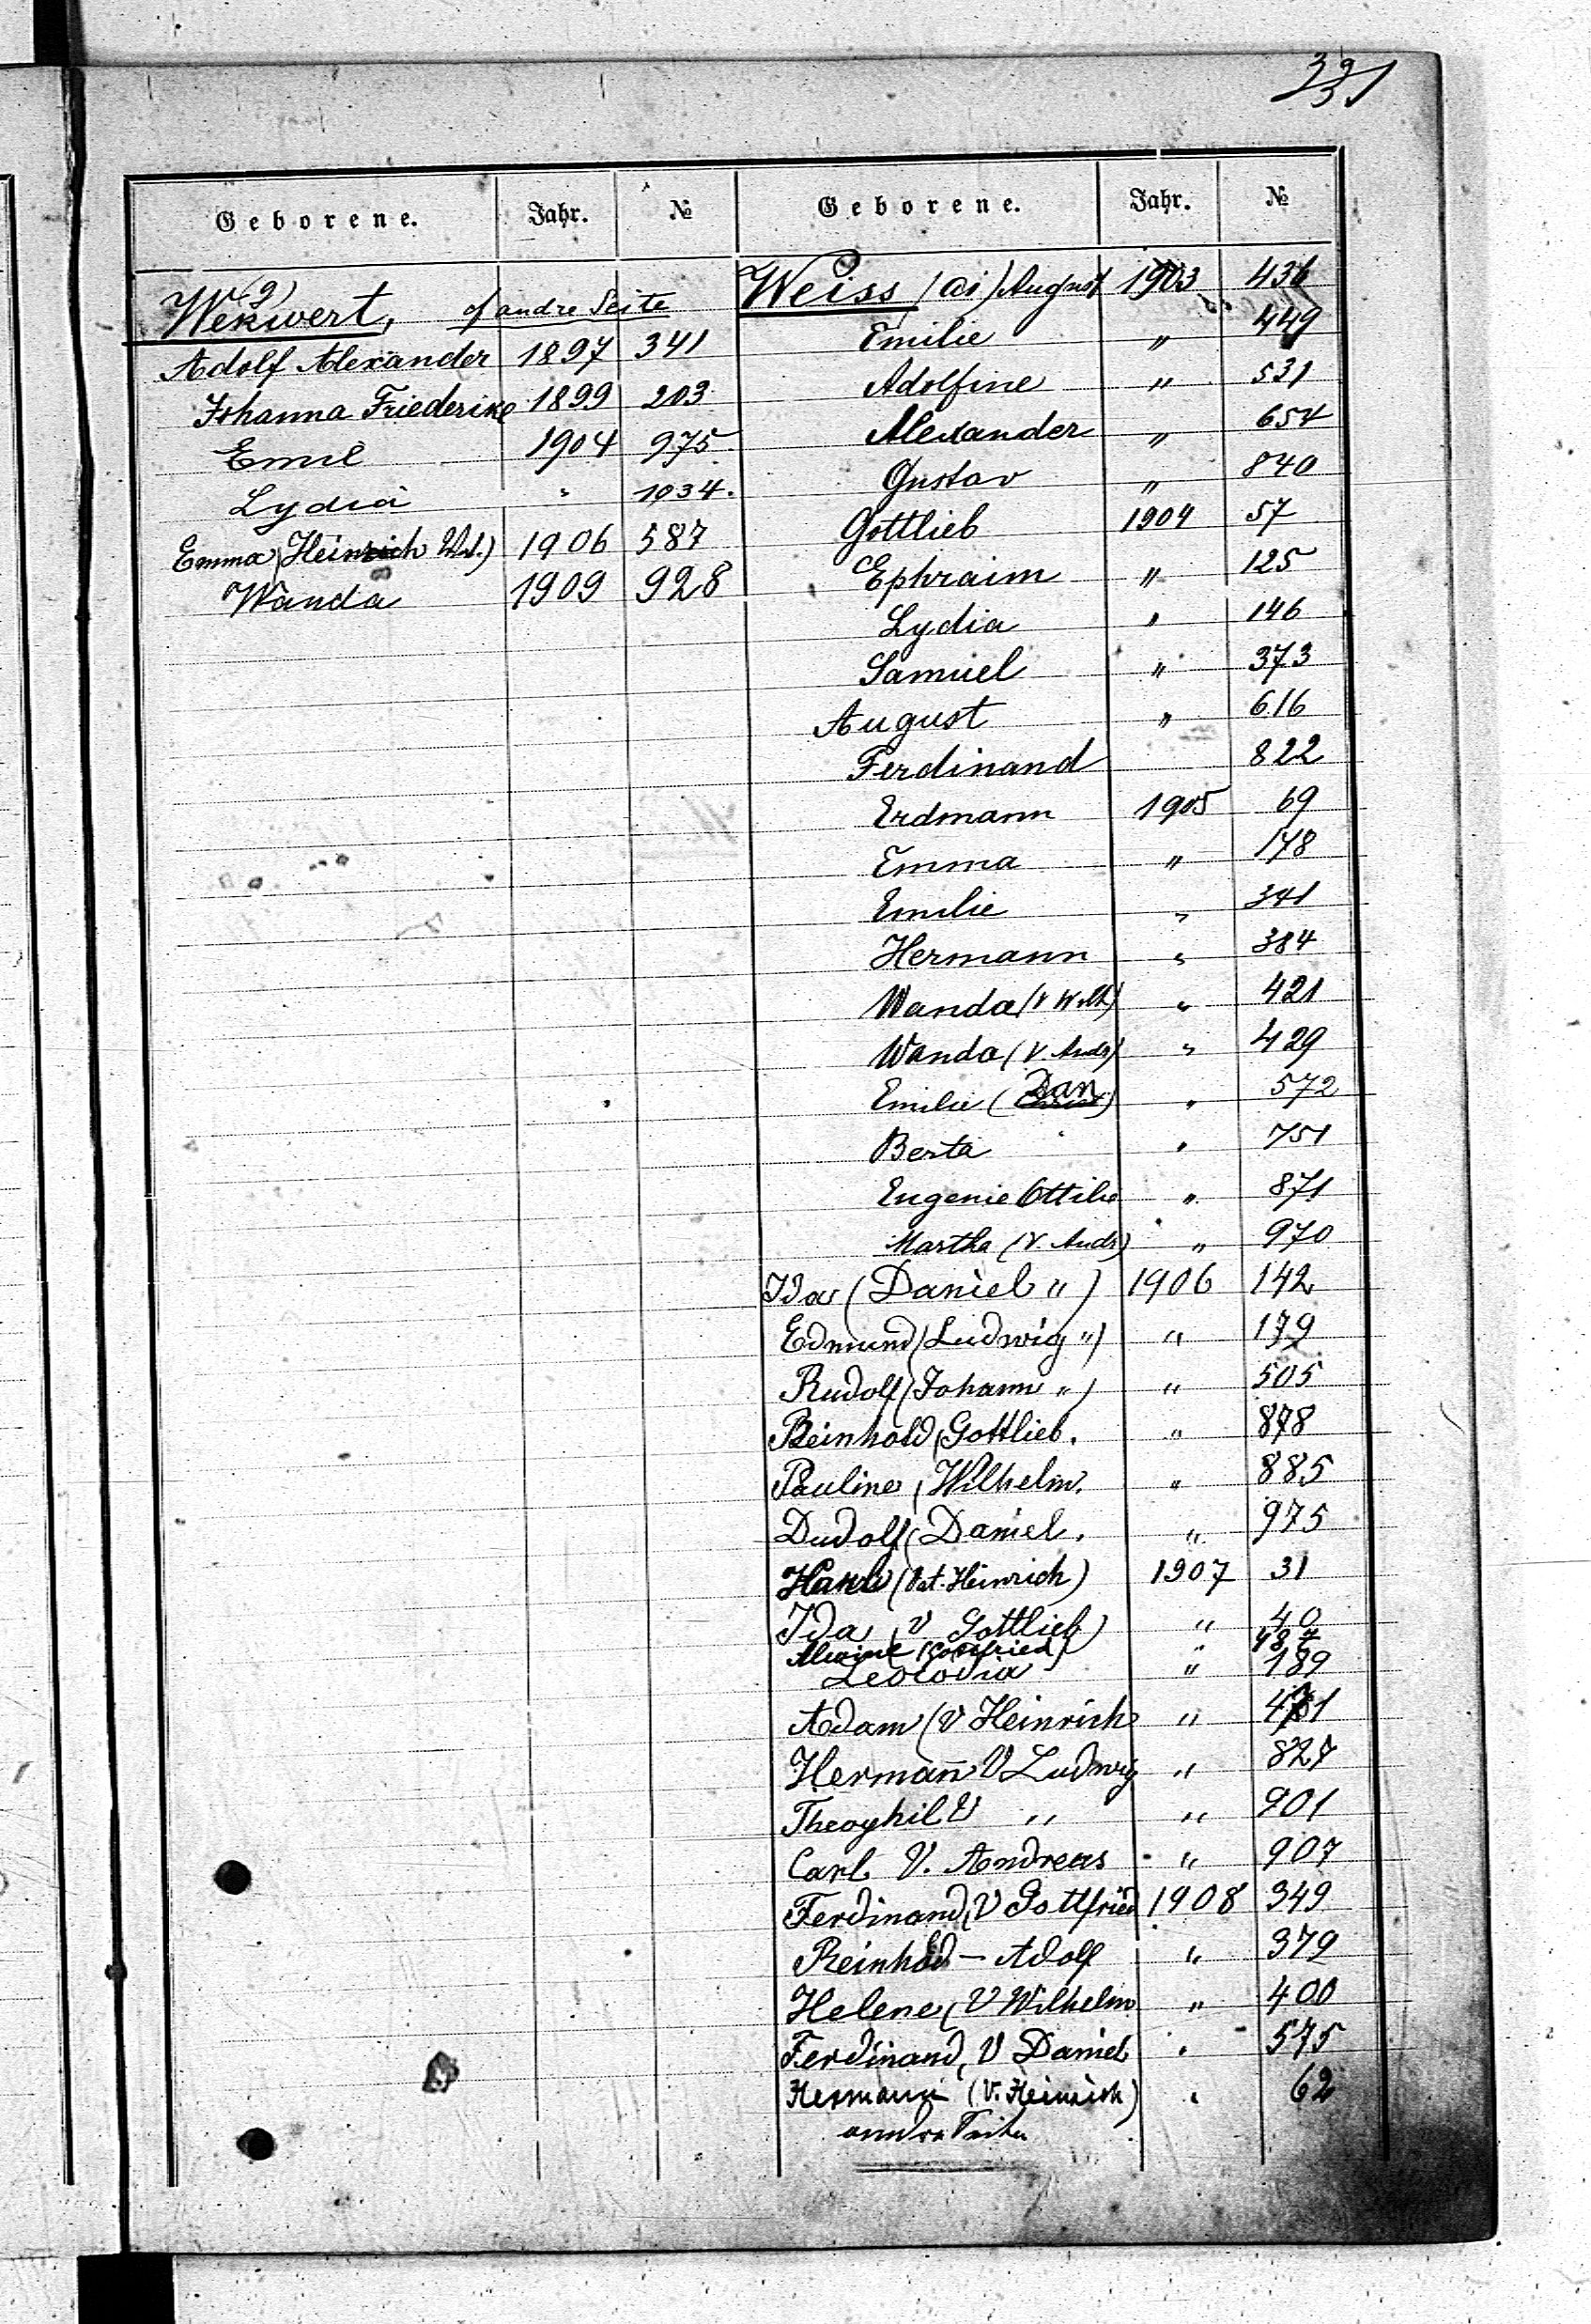 Geborene. Jahr. №
Wekwert, cf andre Seite
Adolf Alexander 1897 341
Johanna Friederike 1899 203
Emil 1904 975
Lydia " 1034.
Emma (Heinrich W.) 1906 587
Wanda 1909 928
Geborene. Jahr. №
Weiss (ai) August 1903 436
Emilie " 449
Adolfine " 531
Alexander " 654
Gustav " 840
Gottlieb 1904 57
Ephraim " 125
Lydia " 146
Samuel " 373
August " 616
Ferdinand 822
Erdmann 1905 69
Emma " 178
Emilie " 341
Hermann " 384
Wanda (V Wilh) " 421
Wanda (V. Andr) " 429
Emilie (Dan) " 572
Berta " 751
Eugenie Ottilie " 871
Martha (V. Andr) " 970
Ida (Daniel ") 1906 142
Edmund (Ludwig ") " 179
Rudolf (Johann ") " 505
Reinhold (Gottlieb. " 878
Pauline (Wilhelm. " 885
Dudolf (Daniel. " 975
(Vat. Heinrich) 1907 31
Ida (V Gottlieb) " 40
Alwine (Gottfried) " 487
Leocodia " 189
Adam (V Heinrich " 471
Herman̄ V Ludwig " 827
Theophil V " " 901
Carl V. Andreas " 907
Ferdinand, V Gottfried 1908 349
Reinhold - Adolf " 379
Helene (V Wilhelm " 400
Ferdinand, V Daniel " 575
Hermann (V. Heinrich) " 62
andre Seite